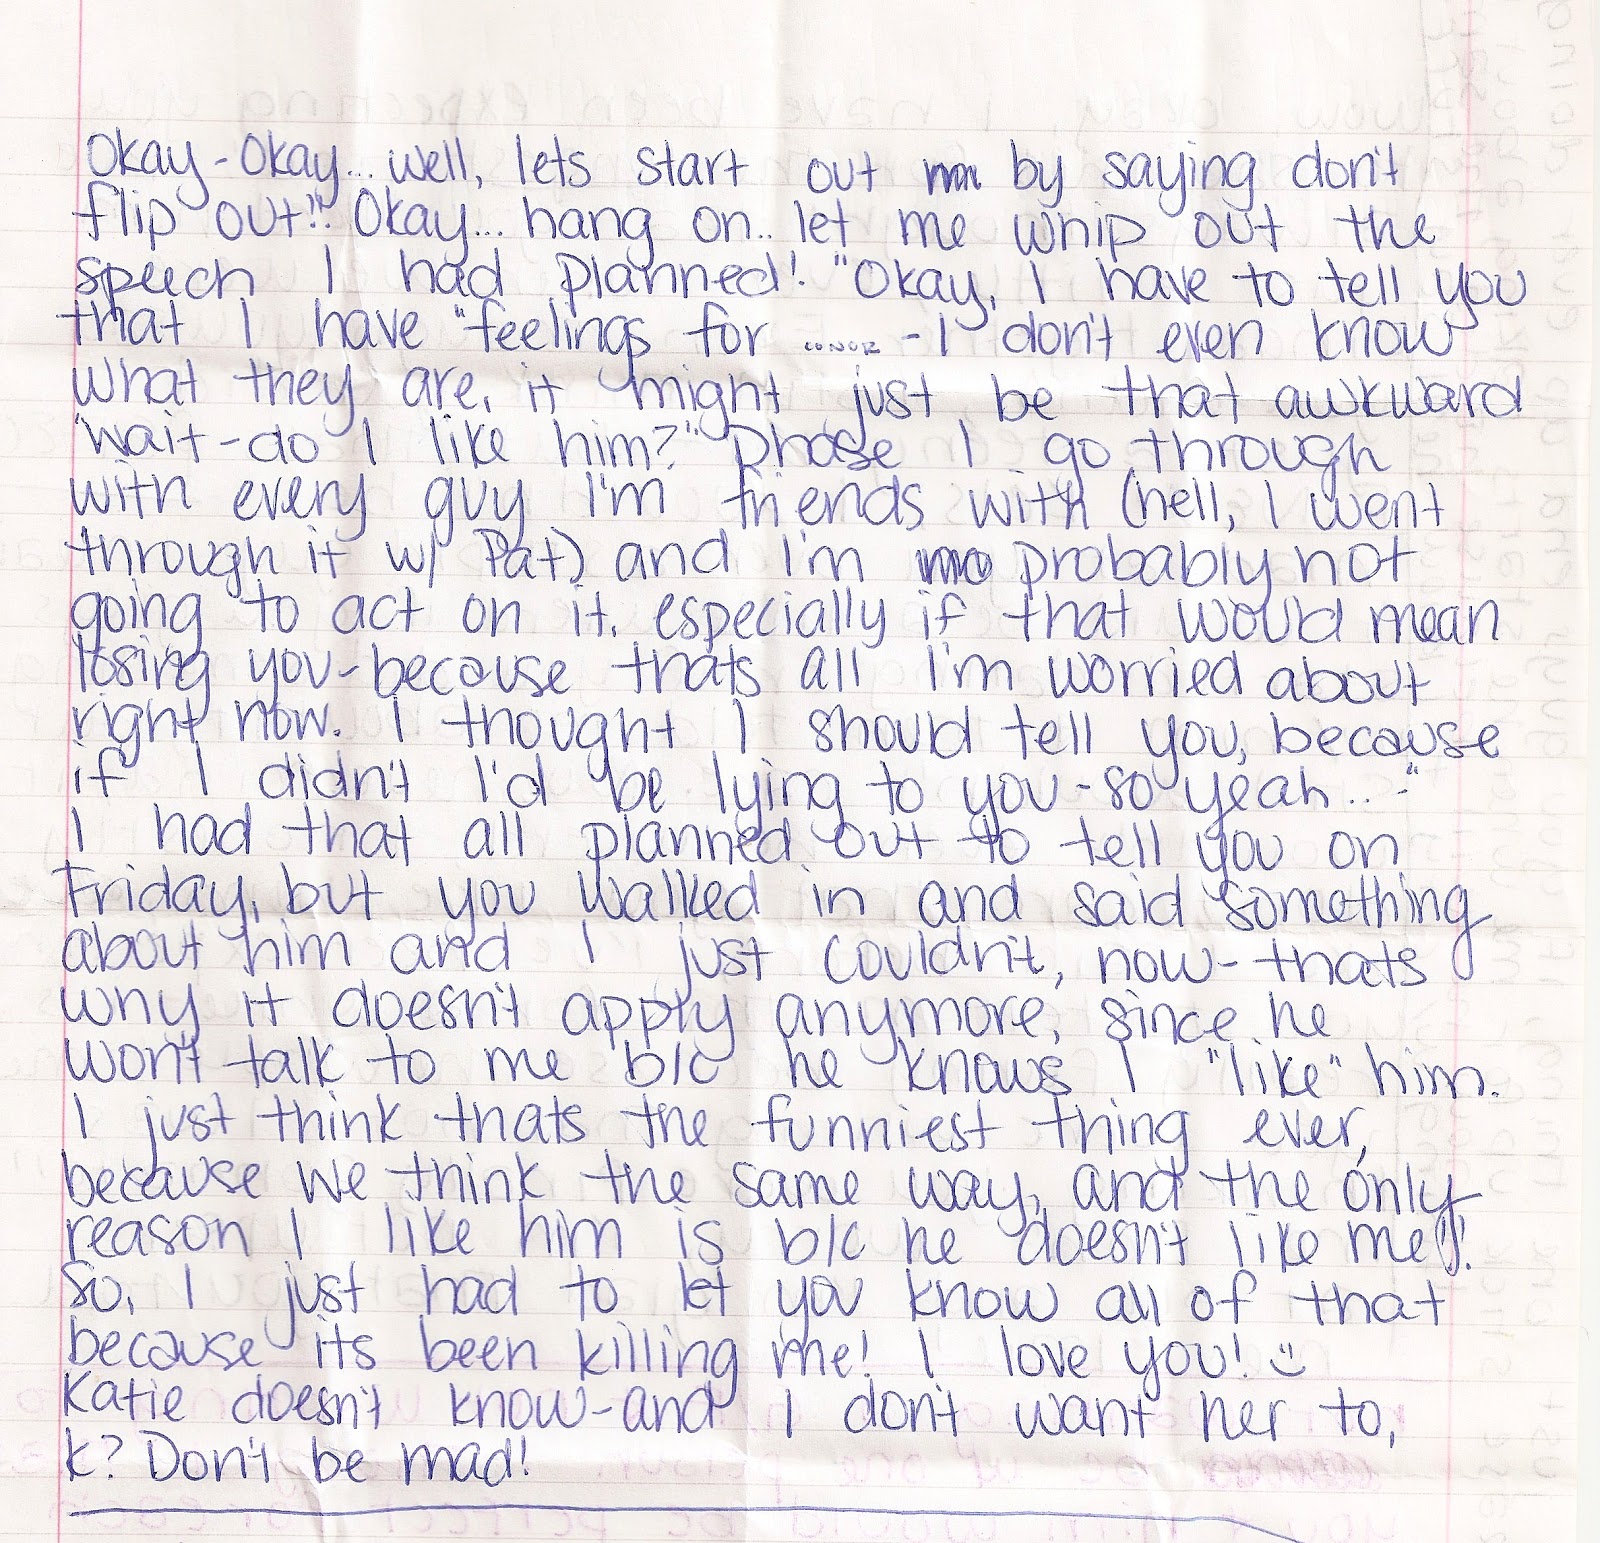 Okay-Okay... well, lets start out by saying don't
flip out!! Okay... hang on.. let me whip out the
speech I had planned! "Okay, I have to tell you
that I have "feelings for ...... - I don't even know
what they are, it might just be that awkward
"wait-do I like him?" phase I go through
with every guy I'm friends with (hell, I went
through it w/ Pat) and I'm probably not
going to act on it. especially if that would mean
losing you-because thats all I'm worried about
right now. I thought I should tell you, because
if I didn't I'd be lying to you-so yeah..-"
I had that all planned out to tell you on
Friday, but you walked in and said something
about him and I just couldn't, now-thats
why it doesn't apply anymore, since he
won't talk to me b/c he knows I "like" him.
I just think thats the funniest thing ever,
because we think the same way, and the only
reason I like him is b/c he doesn't like me!!
So, I just had to let you know all of that
because its been killing me! I love you! :)
Katie doesn't know-and I don't want her to,
k? Don't be mad!